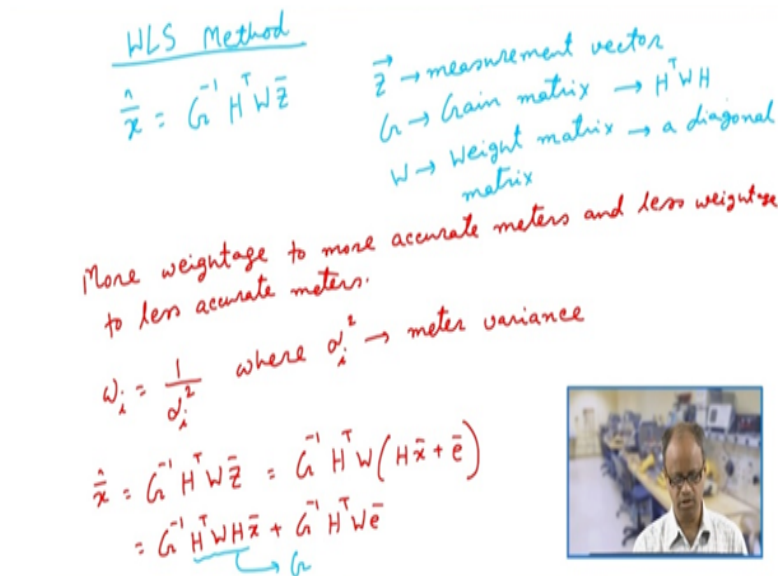 WLS Method
x̂̄ = G⁻¹ Hᵀ W z̄
z⃗ → measurement vector
G → Gain matrix → HᵀWH
W → Weight matrix → a diagonal
matrix
More weightage to more accurate meters and less weightage
to less accurate meters.
ωᵢ = 1/σᵢ² where σᵢ² → meter variance
x̂̄ = G⁻¹ Hᵀ W z̄ = G⁻¹ Hᵀ W (H x̄ + ē)
= G⁻¹ HᵀWH x̄ + G⁻¹ HᵀW ē
→ G